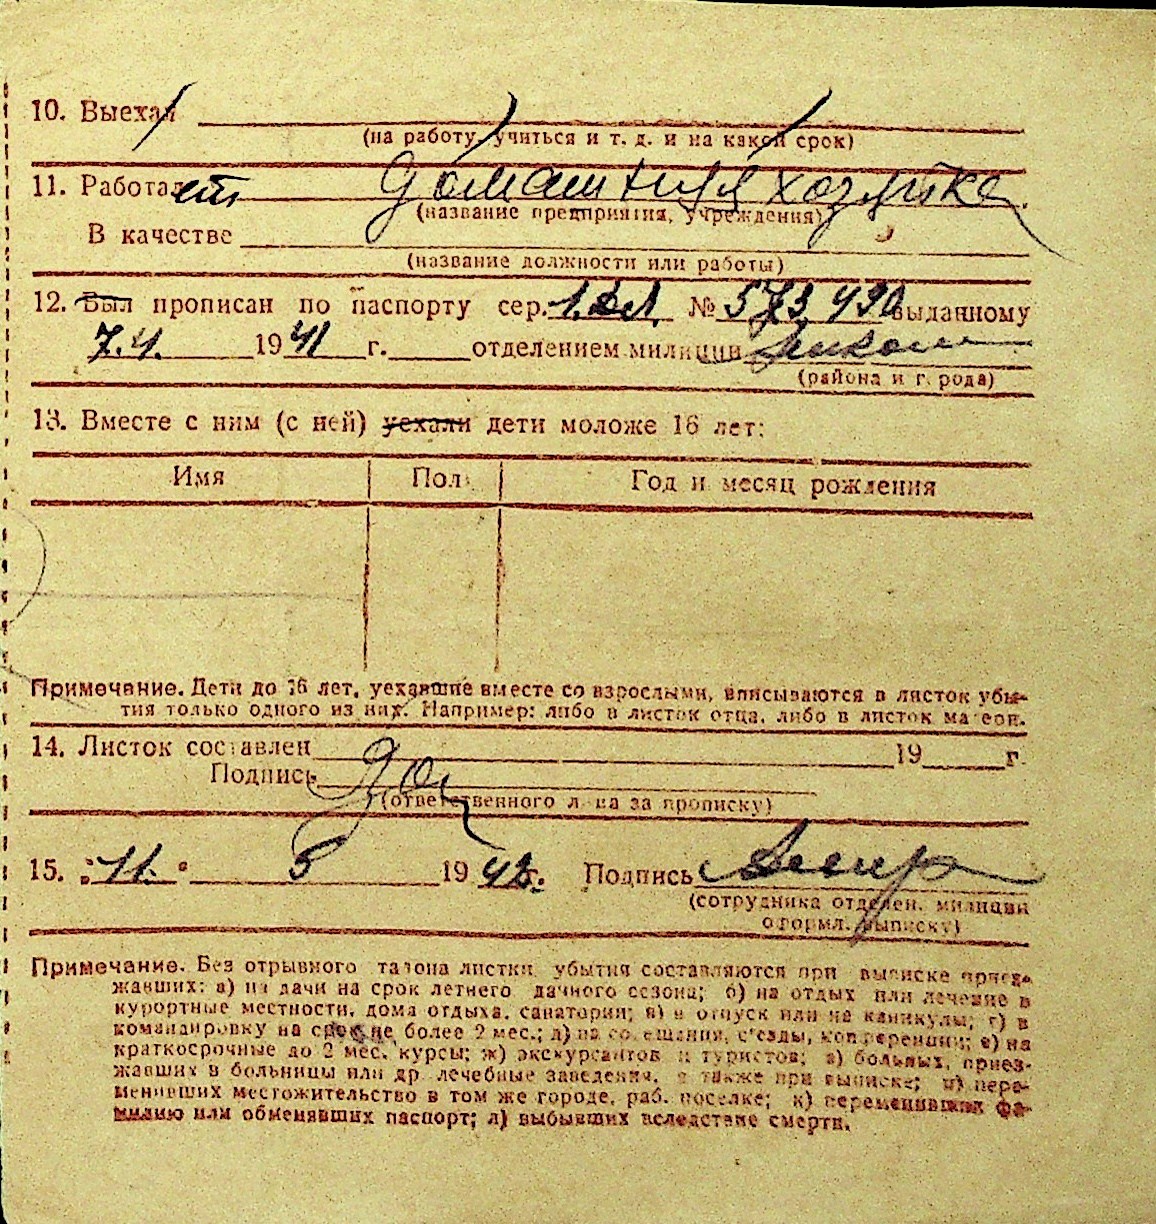 10. Выехал
(на работу, учиться и т. д. и на какой срок)
11. Работает домашняя хозяйка
(название предприятия, учреждения)
В качестве
(название должности или работы)
12. Был прописан по паспорту сер. № 573490 выданному
7.4. 1941 г. отделением милиции
(района и города)
13. Вместе с ним (с ней) уехали дети моложе 16 лет:
Имя Пол Год и месяц рождения
Примечание. Дети до 16 лет, уехавшие вместе со взрослыми, вписываются в листок убы-
тия только одного из них. Например: либо в листок отца, либо в листок матери.
14. Листок составлен 19 г.
Подпись
(ответственного лица за прописку)
15. "11." 5 1942 г. Подпись
(сотрудника отделен. милиции
оформл. выписку)
Примечание. Без отрывного талона листки убытия составляются при выписке приез-
жавших: а) на дачи на срок летнего дачного сезона; б) на отдых или лечение в
курортные местности, дома отдыха, санатории; в) в отпуск или на каникулы; г) в
командировку на срок не более 2 мес.; д) на совещания, с'езды, конференции; е) на
краткосрочные до 2 мес. курсы; ж) экскурсантов и туристов; з) больных, приез-
жавших в больницы или др лечебные заведения, а также при выписке; и) пере-
менивших местожительство в том же городе, раб. поселке; к) переменивших фа-
милию или обменявших паспорт; л) выбывших вследствие смерти.